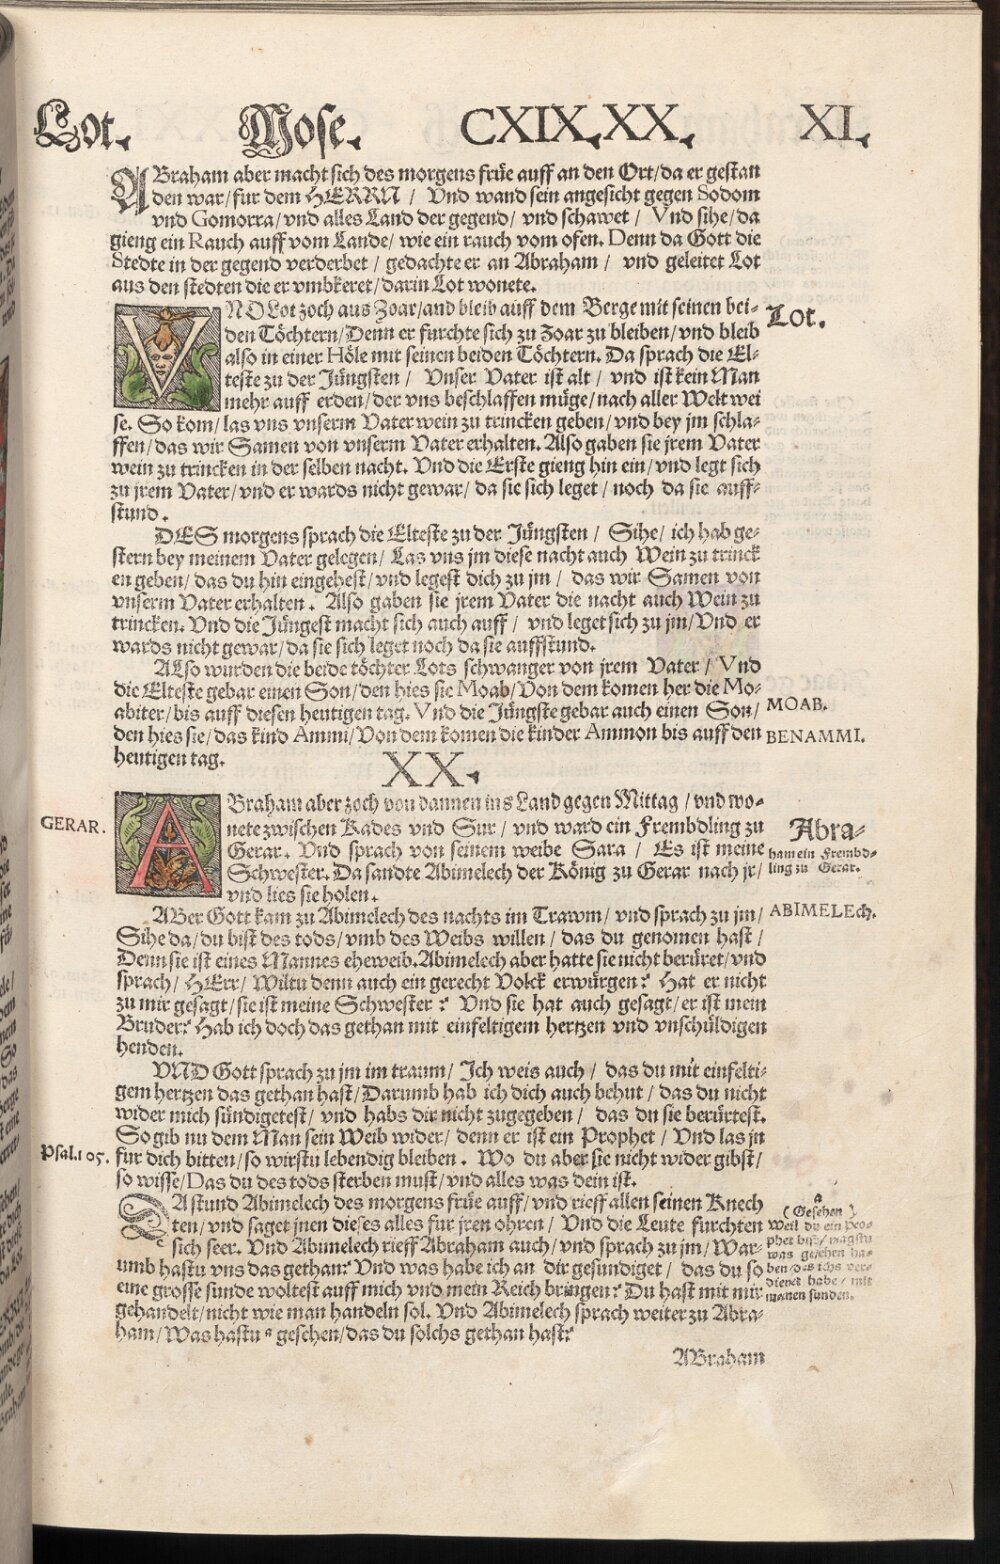 Lot. Mose. CXIX. XX. XI.
ABraham aber macht sich des morgens früe auff an den Ort/da er gestan
den war/fur dem HERRN / Vnd wand sein angesicht gegen Sodom
vnd Gomorra/vnd alles Land der gegend/ vnd schawet / Vnd sihe/da
gieng ein Rauch auff vom Lande/ wie ein rauch vom ofen. Denn da Gott die
Stedte in der gegend verderbet / gedachte er an Abraham / vnd geleitet Lot
aus den stedten die er vmbkeret/darin Lot wonete.
VND Lot zoch aus Zoar/vnd bleib auff dem Berge mit seinen bei-
den Töchtern/Denn er furchte sich zu Zoar zu bleiben/vnd bleib
also in einer Höle mit seinen beiden Töchtern. Da sprach die El-
teste zu der Jüngsten / Vnser Vater ist alt / vnd ist kein Man
mehr auff erden/der vns beschlaffen müge/nach aller Welt wei
se. So kom/las vns vnserm Vater wein zu trincken geben/vnd bey jm schla-
ffen/das wir Samen von vnserm Vater erhalten. Also gaben sie jrem Vater
wein zu trincken in der selben nacht. Vnd die Erste gieng hin ein/vnd legt sich
zu jrem Vater/vnd er wards nicht gewar/da sie sich leget/noch da sie auff-
stund.
Lot.
DES morgens sprach die Elteste zu der Jüngsten / Sihe/ ich hab ge-
stern bey meinem Vater gelegen/ Las vns jm diese nacht auch Wein zu trinck
en geben/das du hin eingehest/vnd legest dich zu jm / das wir Samen von
vnserm Vater erhalten. Also gaben sie jrem Vater die nacht auch Wein zu
trincken. Vnd die Jüngest macht sich auch auff / vnd leget sich zu jm/Vnd er
wards nicht gewar/da sie sich leget noch da sie auffstund.
ALso wurden die beide töchter Lots schwanger von jrem Vater / Vnd
die Elteste gebar einen Son/den hies sie Moab/Von dem komen her die Mo-
abiter/bis auff diesen heutigen tag. Vnd die Jüngste gebar auch einen Son/
den hies sie/das kind Ammi/Von dem komen die kinder Ammon bis auff den
heutigen tag.
MOAB.
BENAMMI.
XX.
ABraham aber zoch von dannen ins Land gegen Mittag / vnd wo-
nete zwischen Kades vnd Sur / vnd ward ein Frembdling zu
Gerar. Vnd sprach von seinem weibe Sara / Es ist meine
Schwester. Da sandte Abimelech der König zu Gerar nach jr/
vnd lies sie holen.
GERAR.
Abra-
ham ein Frembd-
ling zu Gerar.
ABer Gott kam zu Abimelech des nachts im Trawm/ vnd sprach zu jm/
Sihe da/du bist des tods/vmb des Weibs willen / das du genomen hast /
Denn sie ist eines Mannes eheweib. Abimelech aber hatte sie nicht berüret/vnd
sprach/ HErr/ Wiltu denn auch ein gerecht Volck erwürgen? Hat er nicht
zu mir gesagt/sie ist meine Schwester? Vnd sie hat auch gesagt/er ist mein
Bruder? Hab ich doch das gethan mit einfeltigem hertzen vnd vnschüldigen
henden.
ABIMELEch.
VND Gott sprach zu jm im traum/ Ich weis auch / das du mit einfelti-
gem hertzen das gethan hast/Darumb hab ich dich auch behut / das du nicht
wider mich sündigetest/ vnd habs dir nicht zugegeben / das du sie berürtest.
So gib nu dem Man sein Weib wider/ denn er ist ein Prophet / Vnd las jn
fur dich bitten/so wirstu lebendig bleiben. Wo du aber sie nicht wider gibst/
so wisse/Das du des tods sterben must/vnd alles was dein ist.
Psal.105.
DA stund Abimelech des morgens früe auff/vnd rieff allen seinen Knech
ten/vnd saget jnen dieses alles fur jren ohren / Vnd die Leute furchten
sich seer. Vnd Abimelech rieff Abraham auch/vnd sprach zu jm/War-
umb hastu vns das gethan? Vnd was habe ich an dir gesundiget / das du so
eine grosse sunde woltest auff mich vnd mein Reich bringen? Du hast mit mir
gehandelt/nicht wie man handeln sol. Vnd Abimelech sprach weiter zu Abra-
ham/Was hastu a gesehen/das du solchs gethan hast?
a
(Gesehen)
Weil du ein Pro-
phet bist/ magstu
was gesehen ha-
ben/das ichs ver-
dienet habe/ mit
manen sunden.
ABraham